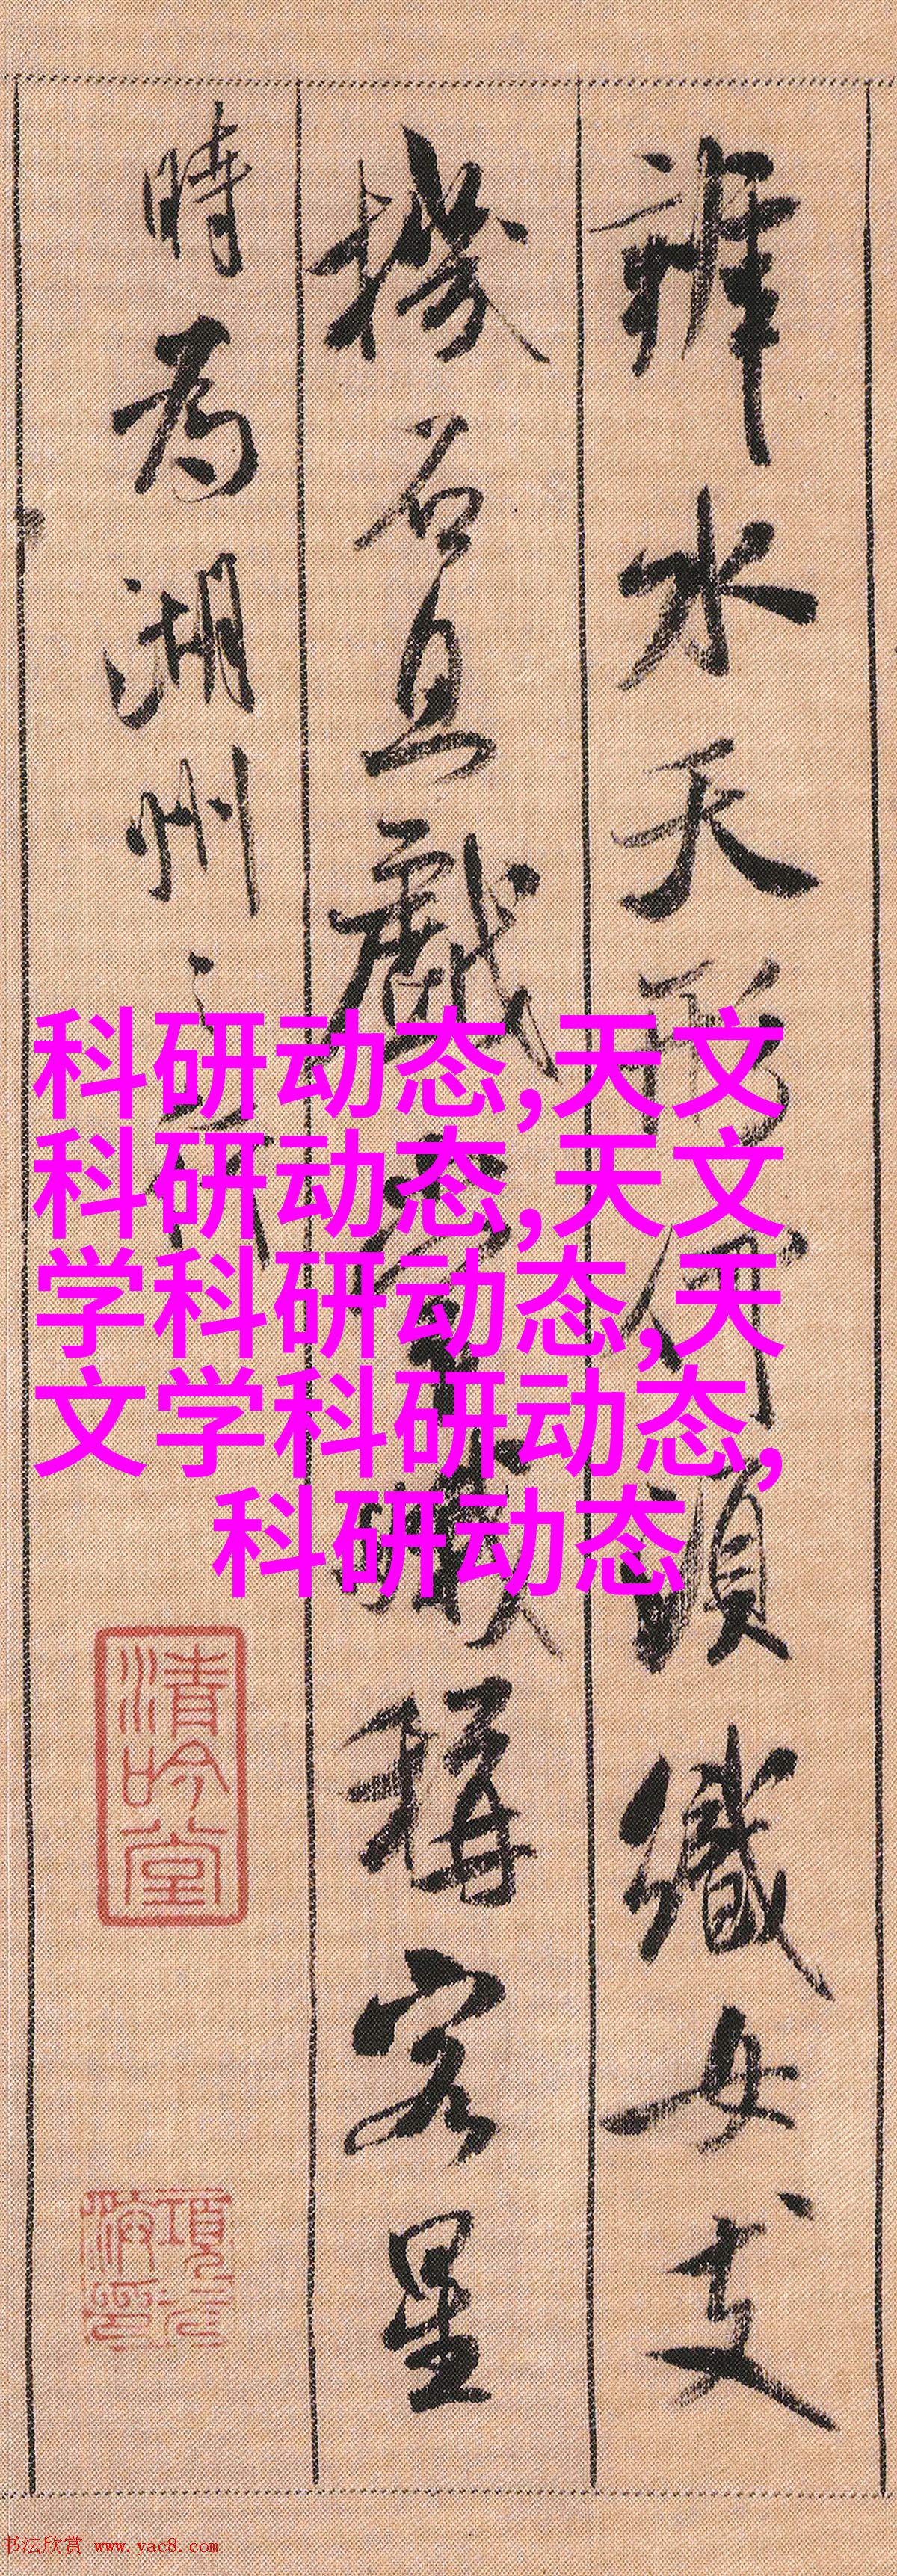 辨水天形何須織女支
機石且戲常娥稱客星
時為湖州之行
科研动态,天文
科研动态,天文
学科研动态,天
文学科研动态,
科研动态
清吟堂
书法欣赏 www.yac8.com